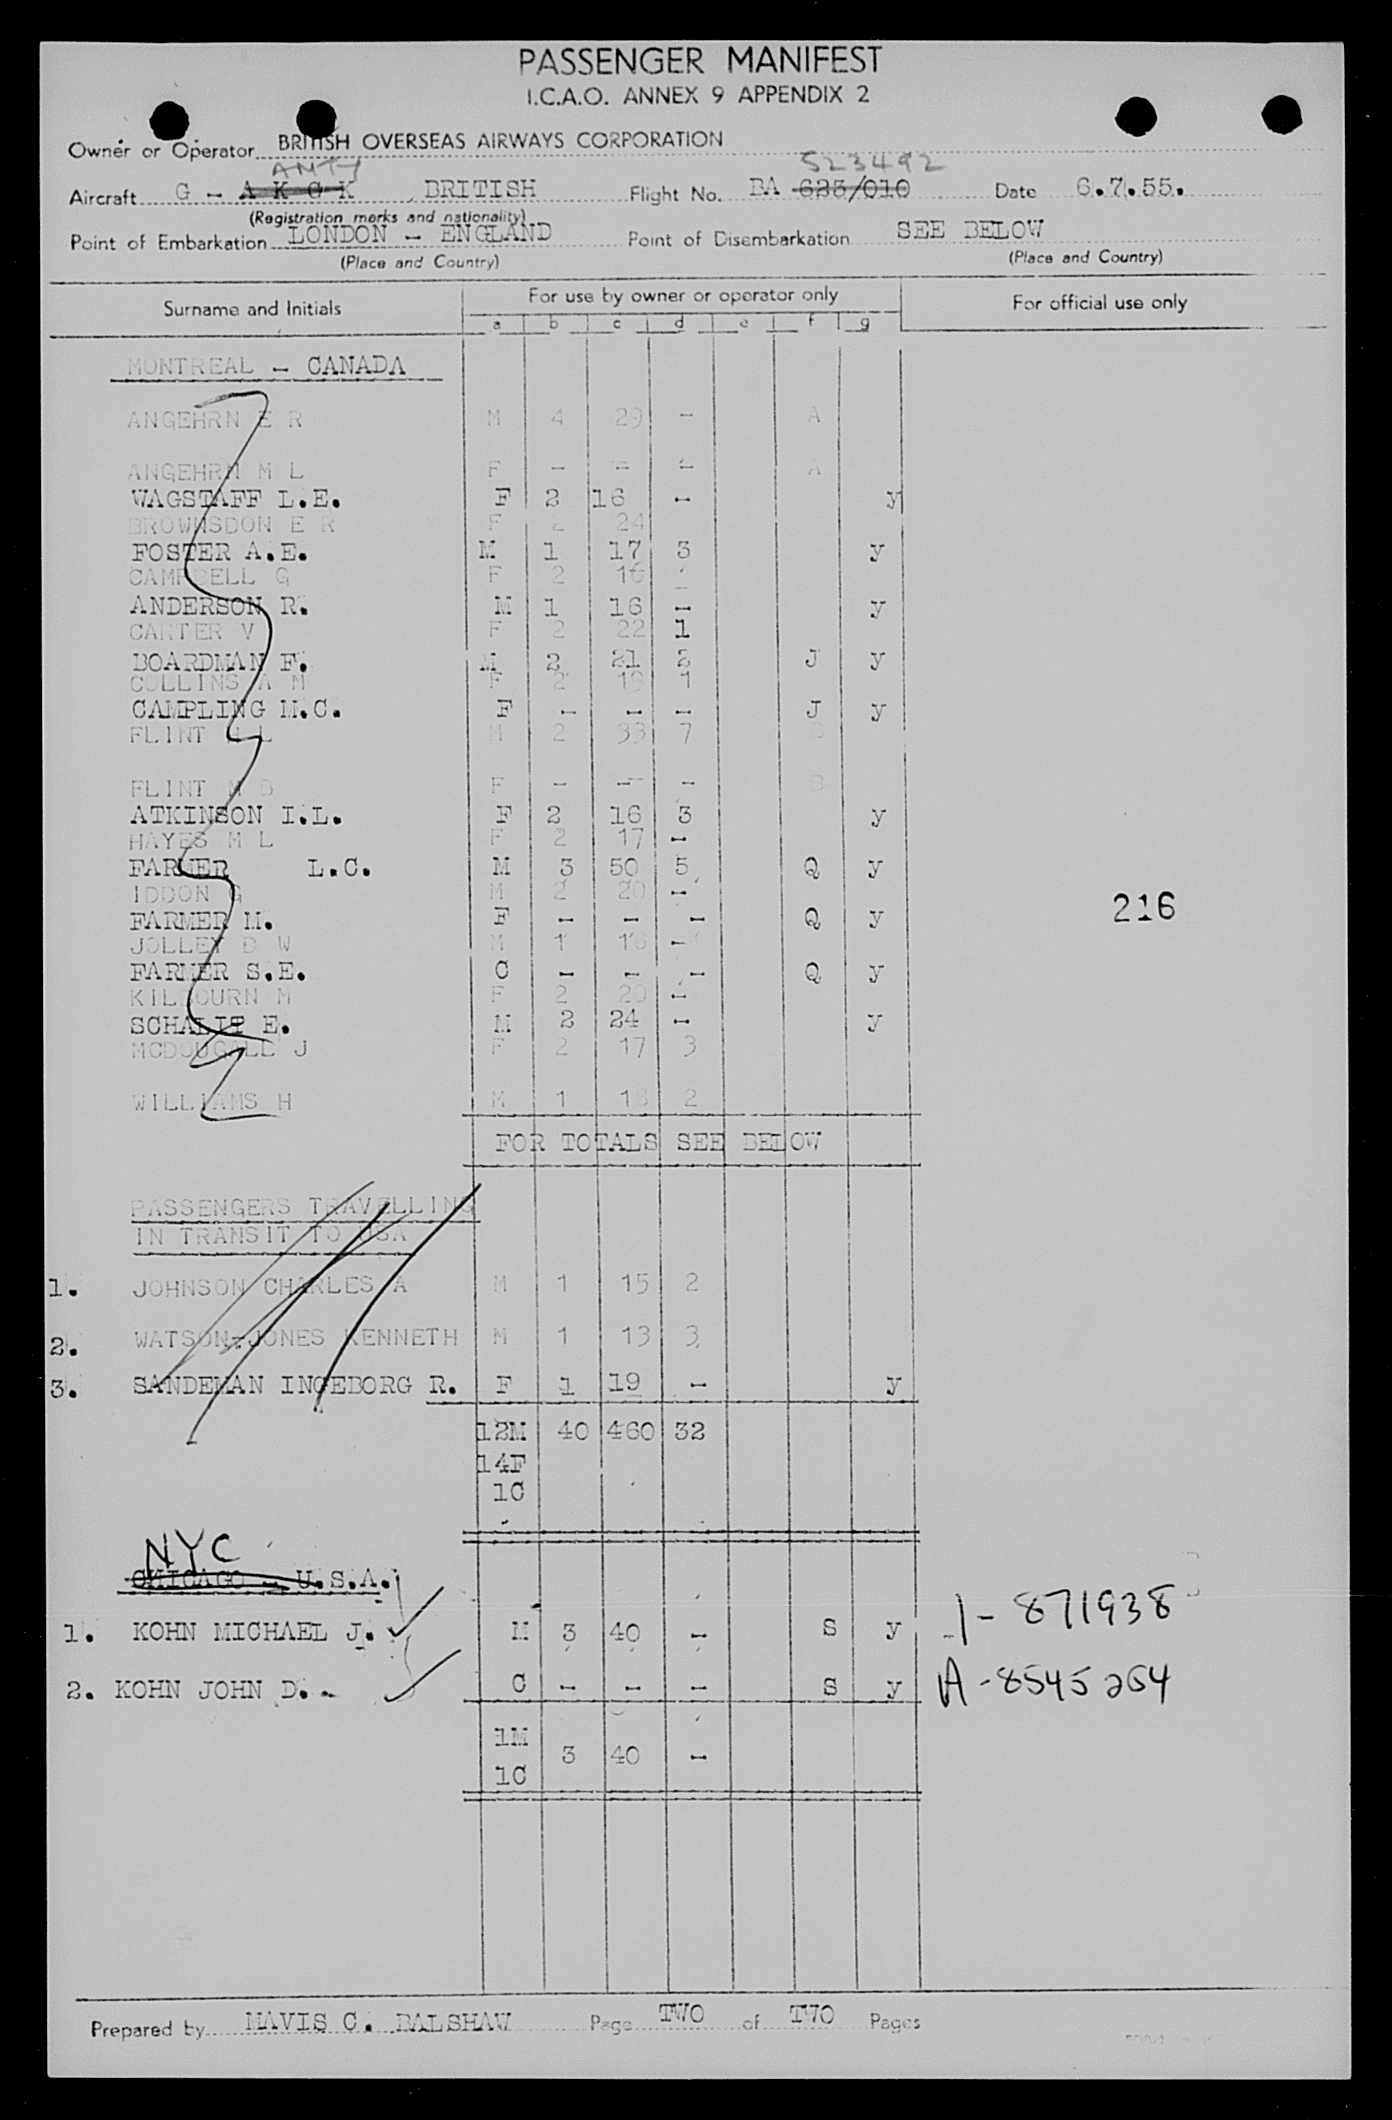 PASSENGER MANIFEST
I.C.A.O. ANNEX 9 APPENDIX 2
Owner or Operator BRITISH OVERSEAS AIRWAYS CORPORATION
ANTY 523492
Aircraft G - A K G K , BRITISH Flight No. BA 623/010 Date 6.7.55.
(Registration marks and nationality)
Point of Embarkation LONDON - ENGLAND Point of Disembarkation SEE BELOW
(Place and Country) (Place and Country)
Surname and Initials For use by owner or operator only For official use only
a b c d e f g
MONTREAL - CANADA
ANGEHRN E R M 4 29 - A
ANGEHRN M L F - - - A
WAGSTAFF L.E. F 2 16 - y
BROWNSDON E R F 2 24
FOSTER A.E. M 1 17 3 y
CAMPBELL G F 2 16 -
ANDERSON R. M 1 16 - y
CARTER V F 2 22 1
BOARDMAN F. M 2 21 2 J y
COLLINS A M F 2 19 1
CAMPLING M.C. F - - - J y
FLINT L M 2 33 7
FLINT M B F - - - B
ATKINSON I.L. F 2 16 3 y
HAYES M L F 2 17 -
FARMER L.C. M 3 50 5 Q y
IDDON G M 2 20 -
FARMER M. F - - - Q y
JOLLEY D W M 1 18 -
FARMER S.E. C - - - Q y
KILBOURN M F 2 20 -
SCHALIT E. M 2 24 - y
MCDOUGALL J F 2 17 3
216
WILLIAMS H M 1 18 2
FOR TOTALS SEE BELOW
PASSENGERS TRAVELLING
IN TRANSIT TO USA
1. JOHNSON CHARLES A M 1 15 2
2. WATSON-JONES KENNETH M 1 13 3
3. SANDEMAN INGEBORG R. F 1 19 - y
12M 40 460 32
14F
1C
NYC
CHICAGO - U.S.A.
1. KOHN MICHAEL J. M 3 40 - S y 1-871938
2. KOHN JOHN D. - C - - - S y A-8545264
1M
3 40 -
1C
Prepared by MAVIS C. BALSHAW Page TWO of TWO Pages